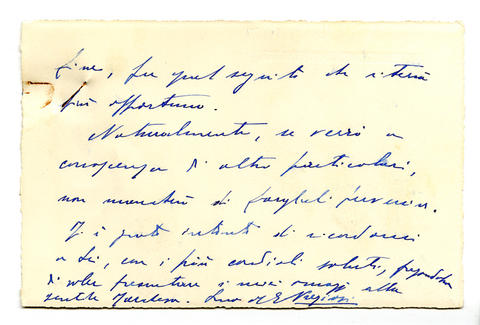 fine, per quel seguito che riterrà
più opportuno.
Naturalmente, se verrò a
conoscenza di altri particolari,
non mancherò di farglieli pervenire.
Mi è grato intanto di ricordarmi
a Lei, con i più cordiali saluti, pregandola
di voler presentare i miei omaggi alla
gentile Signora. Suo